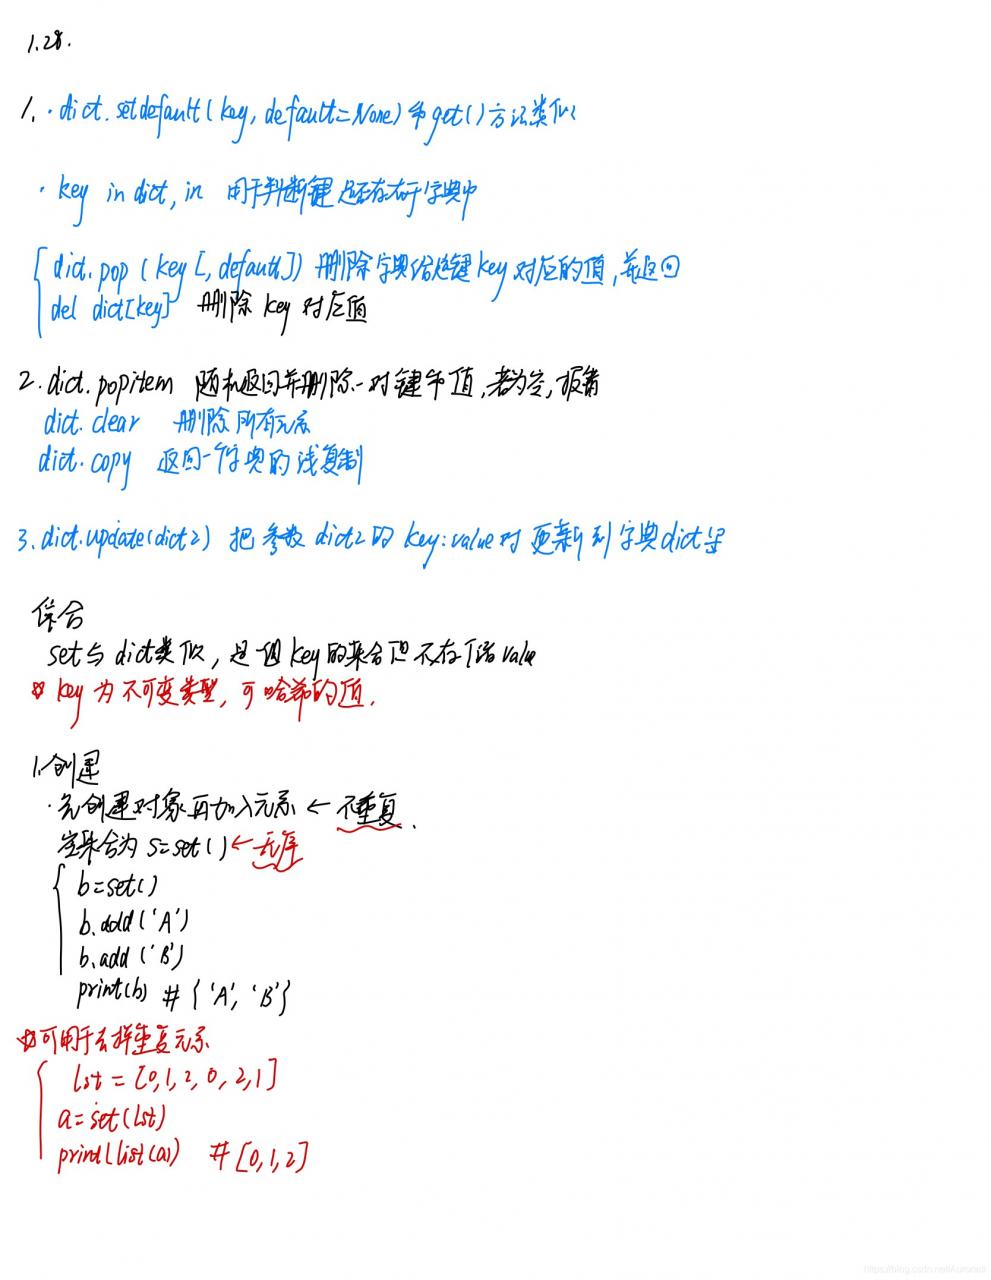 1.28.
1. · dict.setdefault(key, default=None) 和get()方法类似
· key in dict, in 用于判断键是否存在于字典中
dict.pop (key[,default]) 删除字典给定键key对应的值,并返回
del dict[key] 删除key对应值
2. dict.popitem 随机返回并删除一对键和值,若为空,报错
dict.clear 删除所有元素
dict.copy 返回一个字典的浅复制
3. dict.update(dict2) 把参数dict2的key:value对更新到字典dict里
综合
set与dict类似,是一组key的集合但不存储value
key为不可变类型,可哈希的值.
1.创建
· 先创建对象再加入元素 ← 不重复.
空集合为 s=set() ← 无序
b=set()
b.add('A')
b.add('B')
print(b) # {'A', 'B'}
可用于去掉重复元素
lst = [0,1,2,0,2,1]
a=set(lst)
print(list(a)) # [0,1,2]